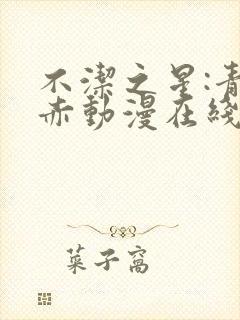 不潔之星:青
赤動漫在綫
菜子窩